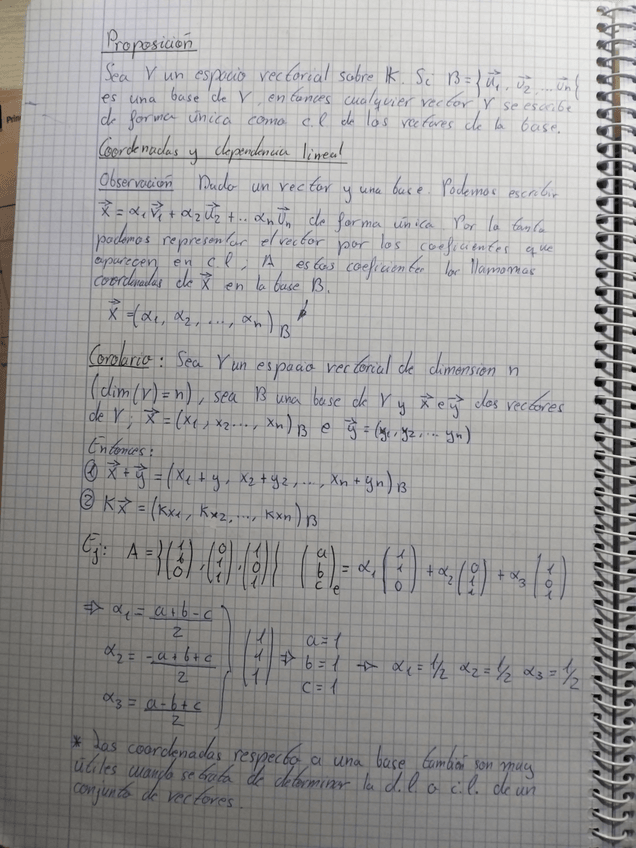 Proposición
Sea V un espacio vectorial sobre K. Si B={u⃗₁, u⃗₂, ... u⃗n}
es una base de V, entonces cualquier vector V se escribe
de forma única como c.l de los vectores de la base.
Coordenadas y dependencia lineal
Observación Dado un vector y una base. Podemos escribir
x⃗ = α₁v⃗₁ + α₂u⃗₂ + .. αnu⃗n de forma única. Por lo tanto
podemos representar el vector por los coeficientes que
aparecen en c l, A estos coeficientes los llamamos
coordenadas de x⃗ en la base B.
x⃗ = (α₁, α₂, ..., αn)B
Corolario: Sea V un espacio vectorial de dimension n
(dim(V)=n), sea B una base de V y x⃗ e y⃗ dos vectores
de V; x⃗ = (x₁, x₂..., xn)B e y⃗ = (y₁, y₂, ... yn)
Entonces:
① x⃗+y⃗ = (x₁+y, x₂+y₂, ..., xn+yn)B
② Kx⃗ = (Kx₁, Kx₂, ..., Kxn)B
Ej: A = {(1 1 0), (0 1 1), (1 0 1)} (a b c)e = α₁(1 1 0) + α₂(0 1 1) + α₃(1 0 1)
⇒ α₁ = (a+b-c)/2
α₂ = (-a+b+c)/2 (1 1 1) ⇒ a=1 b=1 c=1 → α₁=1/2 α₂=1/2 α₃=1/2
α₃ = (a-b+c)/2
* Las coordenadas respecto a una base también son muy
útiles cuando se trata de determinar la d.l o i.l. de un
conjunto de vectores.